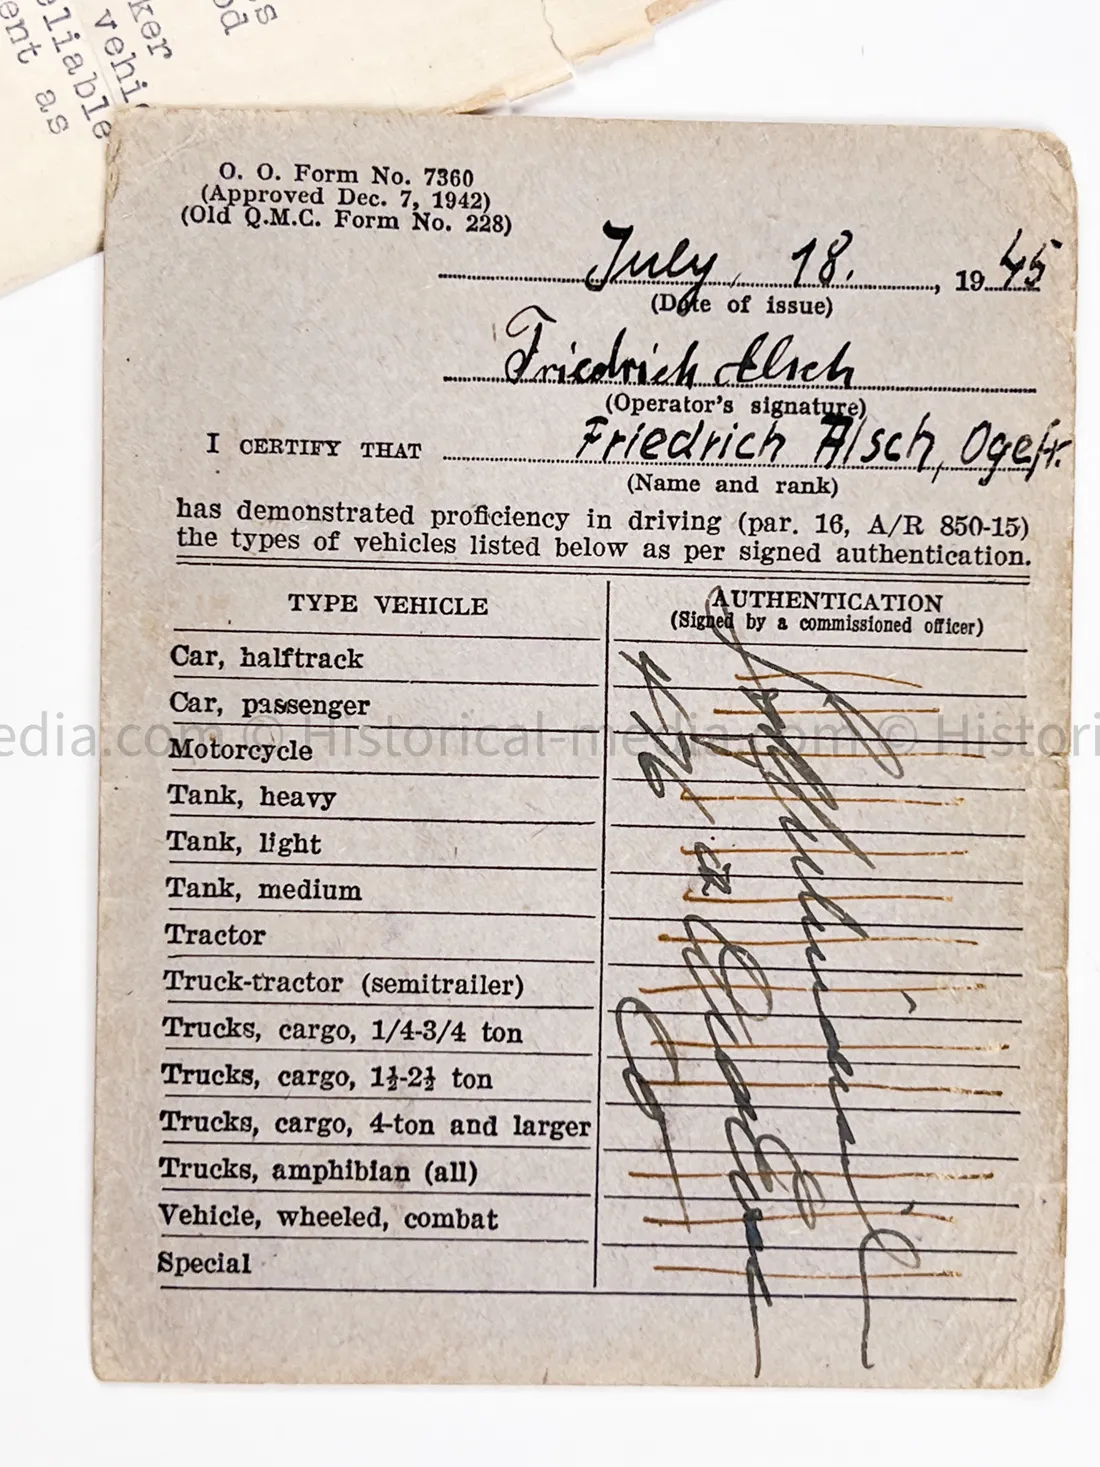 ker
vehi
eliable
ent as
O. O. Form No. 7360
(Approved Dec. 7, 1942)
(Old Q.M.C. Form No. 228)
July, 18. , 1945
(Date of issue)
Friedrich Alsch
(Operator's signature)
I CERTIFY THAT Friedrich Alsch, Ogefr.
(Name and rank)
has demonstrated proficiency in driving (par. 16, A/R 850-15)
the types of vehicles listed below as per signed authentication.
TYPE VEHICLE AUTHENTICATION
(Signed by a commissioned officer)
Car, halftrack
Car, passenger
edia.com © Historical-media.com © Histori
Motorcycle
Tank, heavy
Tank, light
Tank, medium
Tractor
Truck-tractor (semitrailer)
Trucks, cargo, 1/4-3/4 ton
Trucks, cargo, 1½-2½ ton
Trucks, cargo, 4-ton and larger
Trucks, amphibian (all)
Vehicle, wheeled, combat
Special